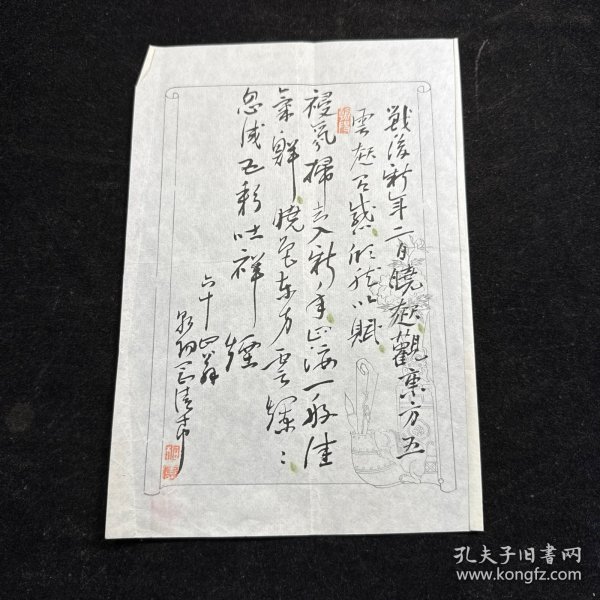 戰後新年二日曉起觀東方五
雲起有感而賦
祲氛掃去入新年四海一般佳
氣鮮曉色東方雲
忽成五彩吐祥煙
六十四翁
孔夫子旧書网
www.kongfz.com